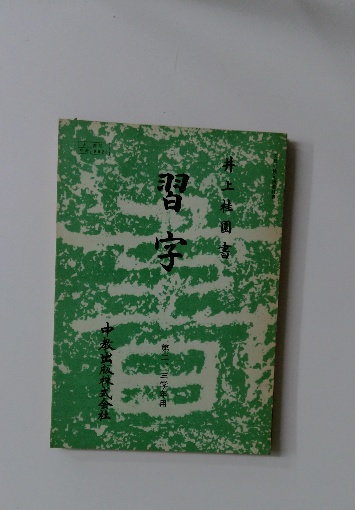 井上桂園書
習字
第二、三学年用
中教出版株式会社